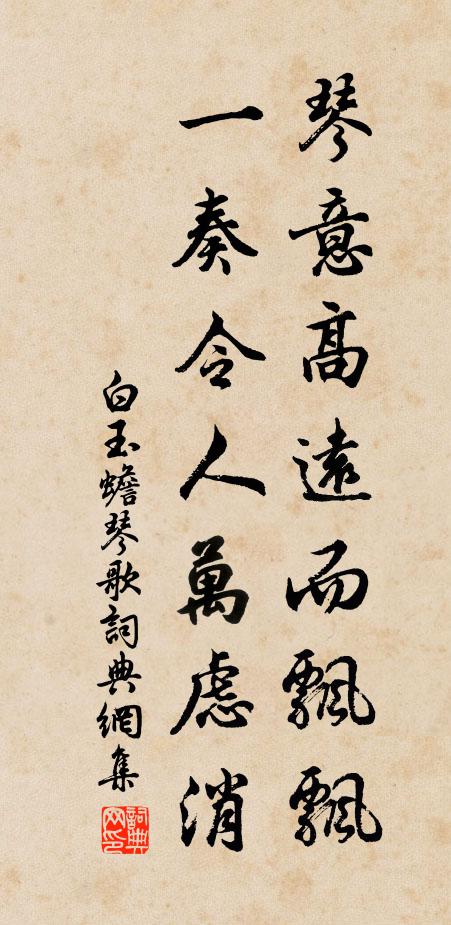 琴意高遠而飄飄
一奏令人萬慮消
白玉蟾琴歌詞典網集
詞典網印